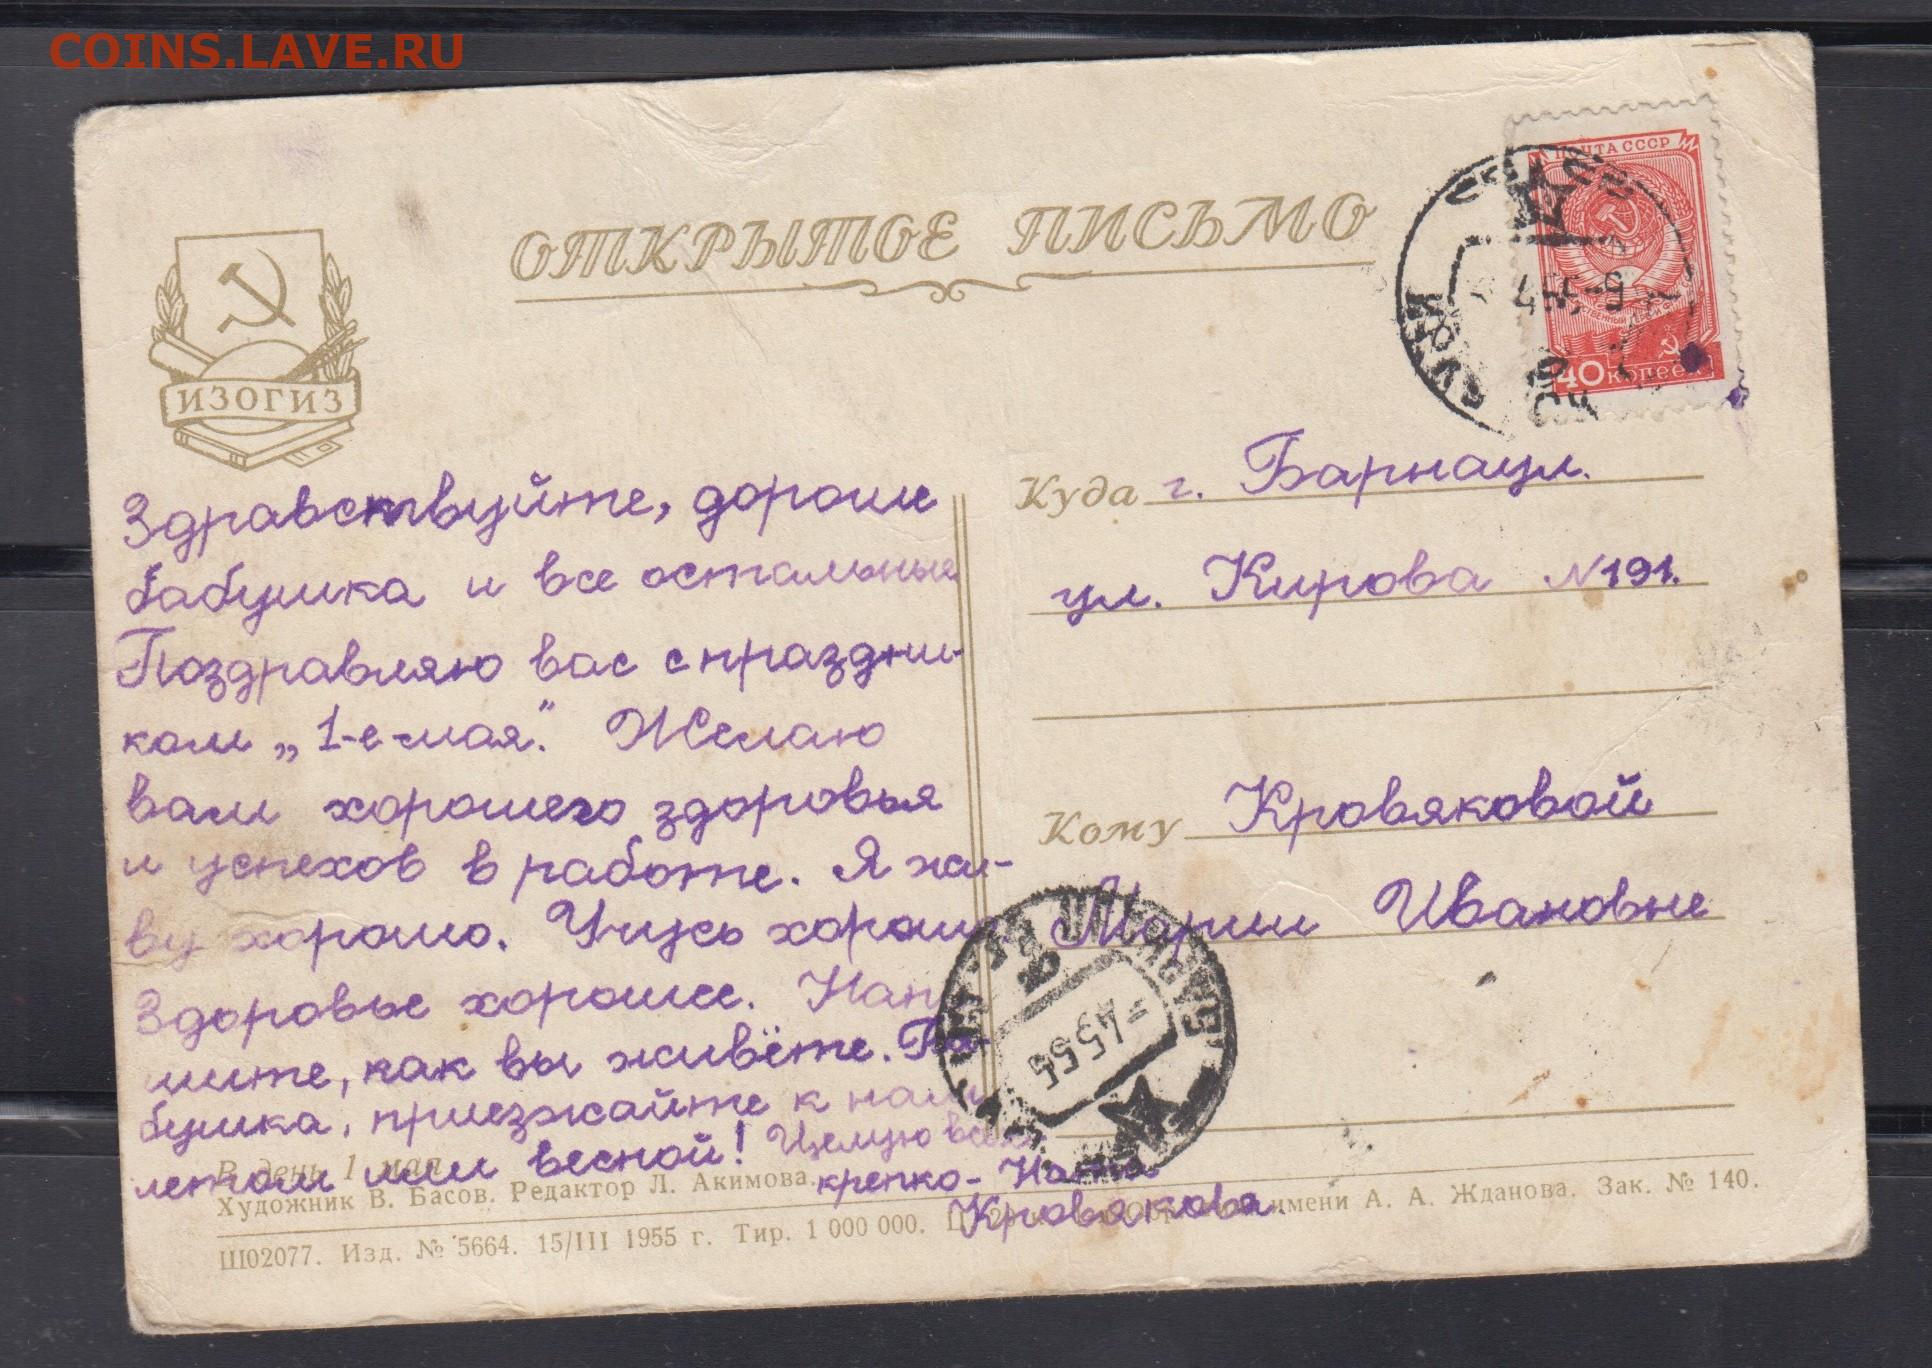 COINS.LAVE.RU
ОТКРЫТОЕ ПИСЬМО
ПОЧТА СССР
40 КОПЕЕК
ИЗОГИЗ
Здравствуйте, дорогие
бабушка и все остальные
Поздравляю вас с праздни-
ком „1-е-мая". Желаю
вам хорошего здоровья
и успехов в работе. Я жи-
ву хорошо. Учусь хорошо
Здоровье хорошее. Напи
шите, как вы живёте. Ба-
бушка, приезжайте к нам
летом или весной! Целую всех
крепко-
Кровякова.
Куда г. Барнаул.
ул. Кирова №191.
Кому Кровяковой
Марии Ивановне
4555
В день 1 мая
Художник В. Басов. Редактор Л. Акимова.
имени А. А. Жданова. Зак. № 140.
Ш02077. Изд. № 5664. 15/III 1955 г. Тир. 1 000 000.